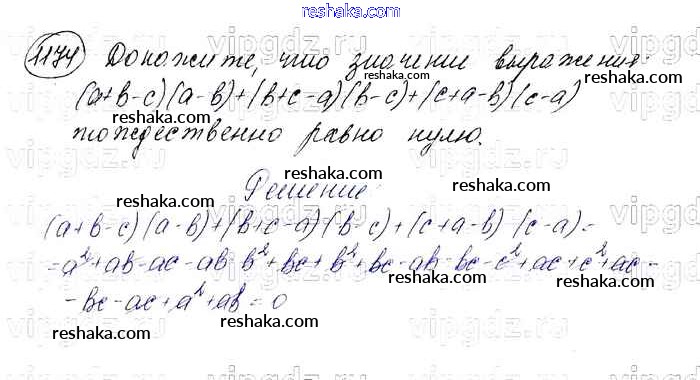 reshaka.com
1174 Докажите, что значение выражения:
reshaka.com reshaka.com
(a+b-c)(a-b)+(b+c-a)(b-c)+(c+a-b)(c-a)
тождественно равно нулю.
reshaka.com
reshaka.com
Решение:
reshaka.com reshaka.com
(a+b-c)(a-b)+(b+c-a)(b-c)+(c+a-b)(c-a)=
=a²+ab-ac-ab-b²+bc+b²+bc-ab-bc-c²+ac+c²+ac-
-bc-ac+a²+ab=0
reshaka.com reshaka.com reshaka.com